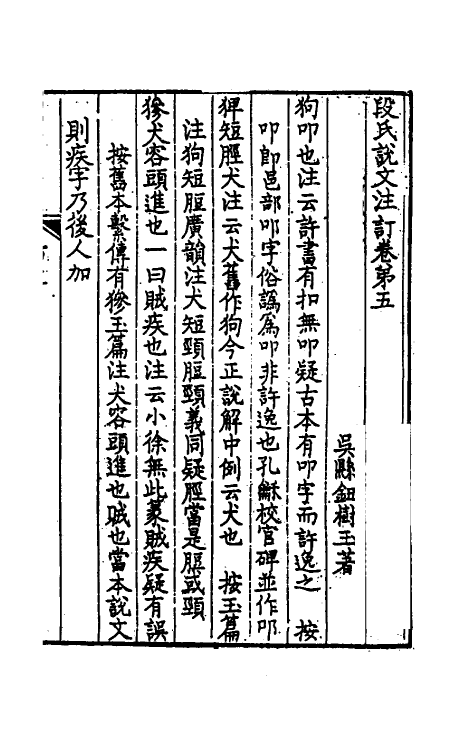 段氏說文注訂卷第五
吳縣鈕樹玉著
狗叩也注云許書有扣無叩疑古本有叩字而許逸之　按
叩卽邑部叩字俗譌爲叩非許逸也孔龢校官碑並作叩
猈短脛犬注云犬舊作狗今正說解中例云犬也　按玉篇
注狗短脰廣韻注犬短頸脰頸義同疑脛當是脰或頸
猭犬容頭進也一曰賊疾也注云小徐無此篆賊疾疑有誤
按舊本繫傳有獊玉篇注犬容頭進也賊也當本說文
則疾字乃後人加